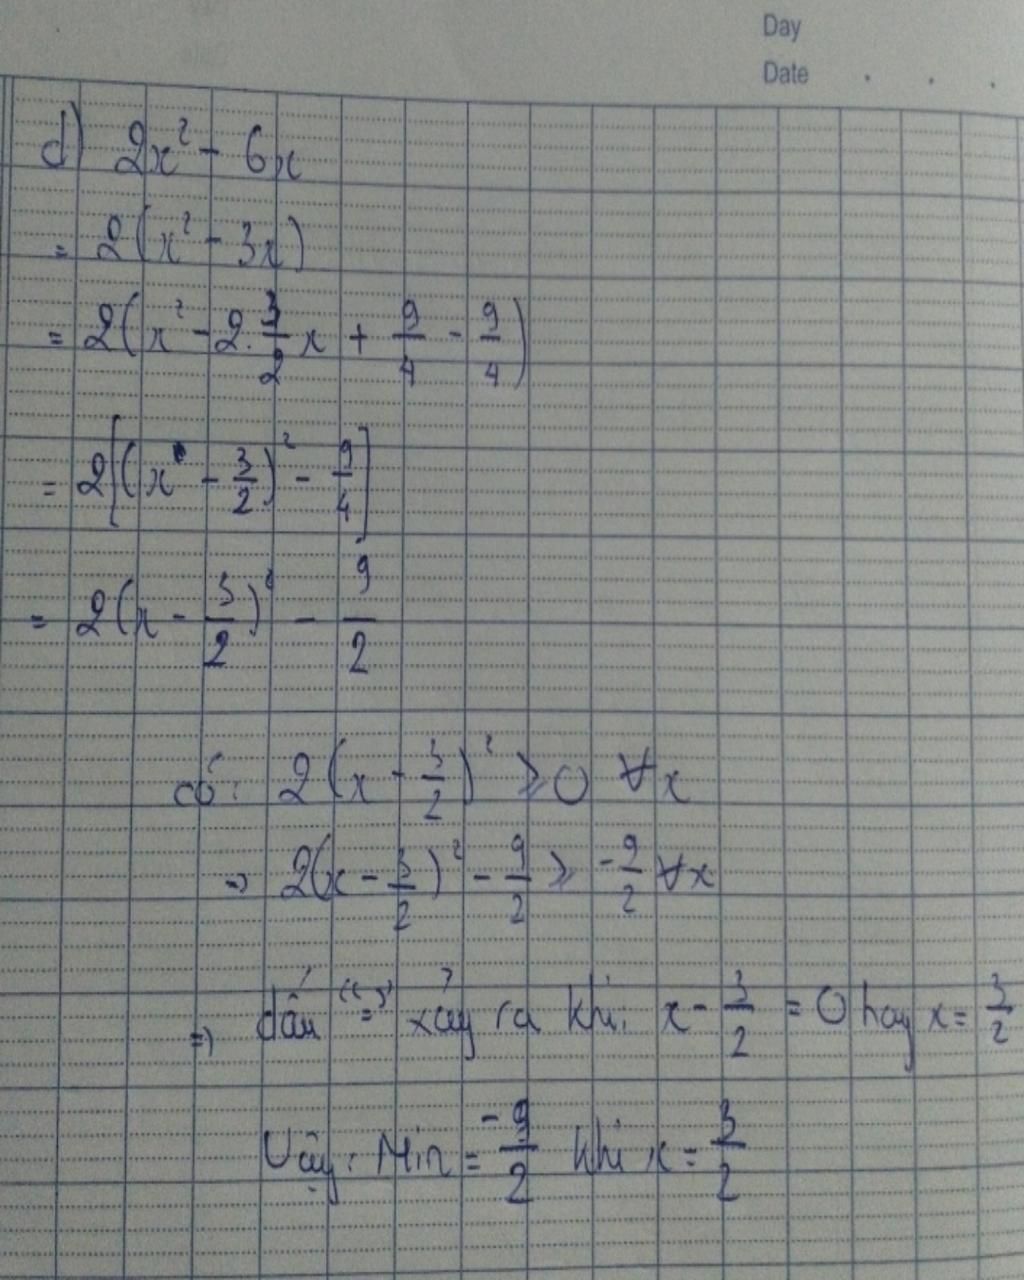 Day
Date . . .
d) 2x² - 6x
= 2(x² - 3x)
= 2(x² - 2.3/2 x + 9/4 - 9/4)
= 2[(x - 3/2)² - 9/4]
= 2(x - 3/2)² - 9/2
có: 2(x - 3/2)² ⩾ 0 ∀x
=> 2(x - 3/2)² - 9/2 ⩾ -9/2 ∀x
=> dấu "=" xảy ra khi x - 3/2 = 0 hay x = 3/2
Vậy: Min = -9/2 khi x = 3/2